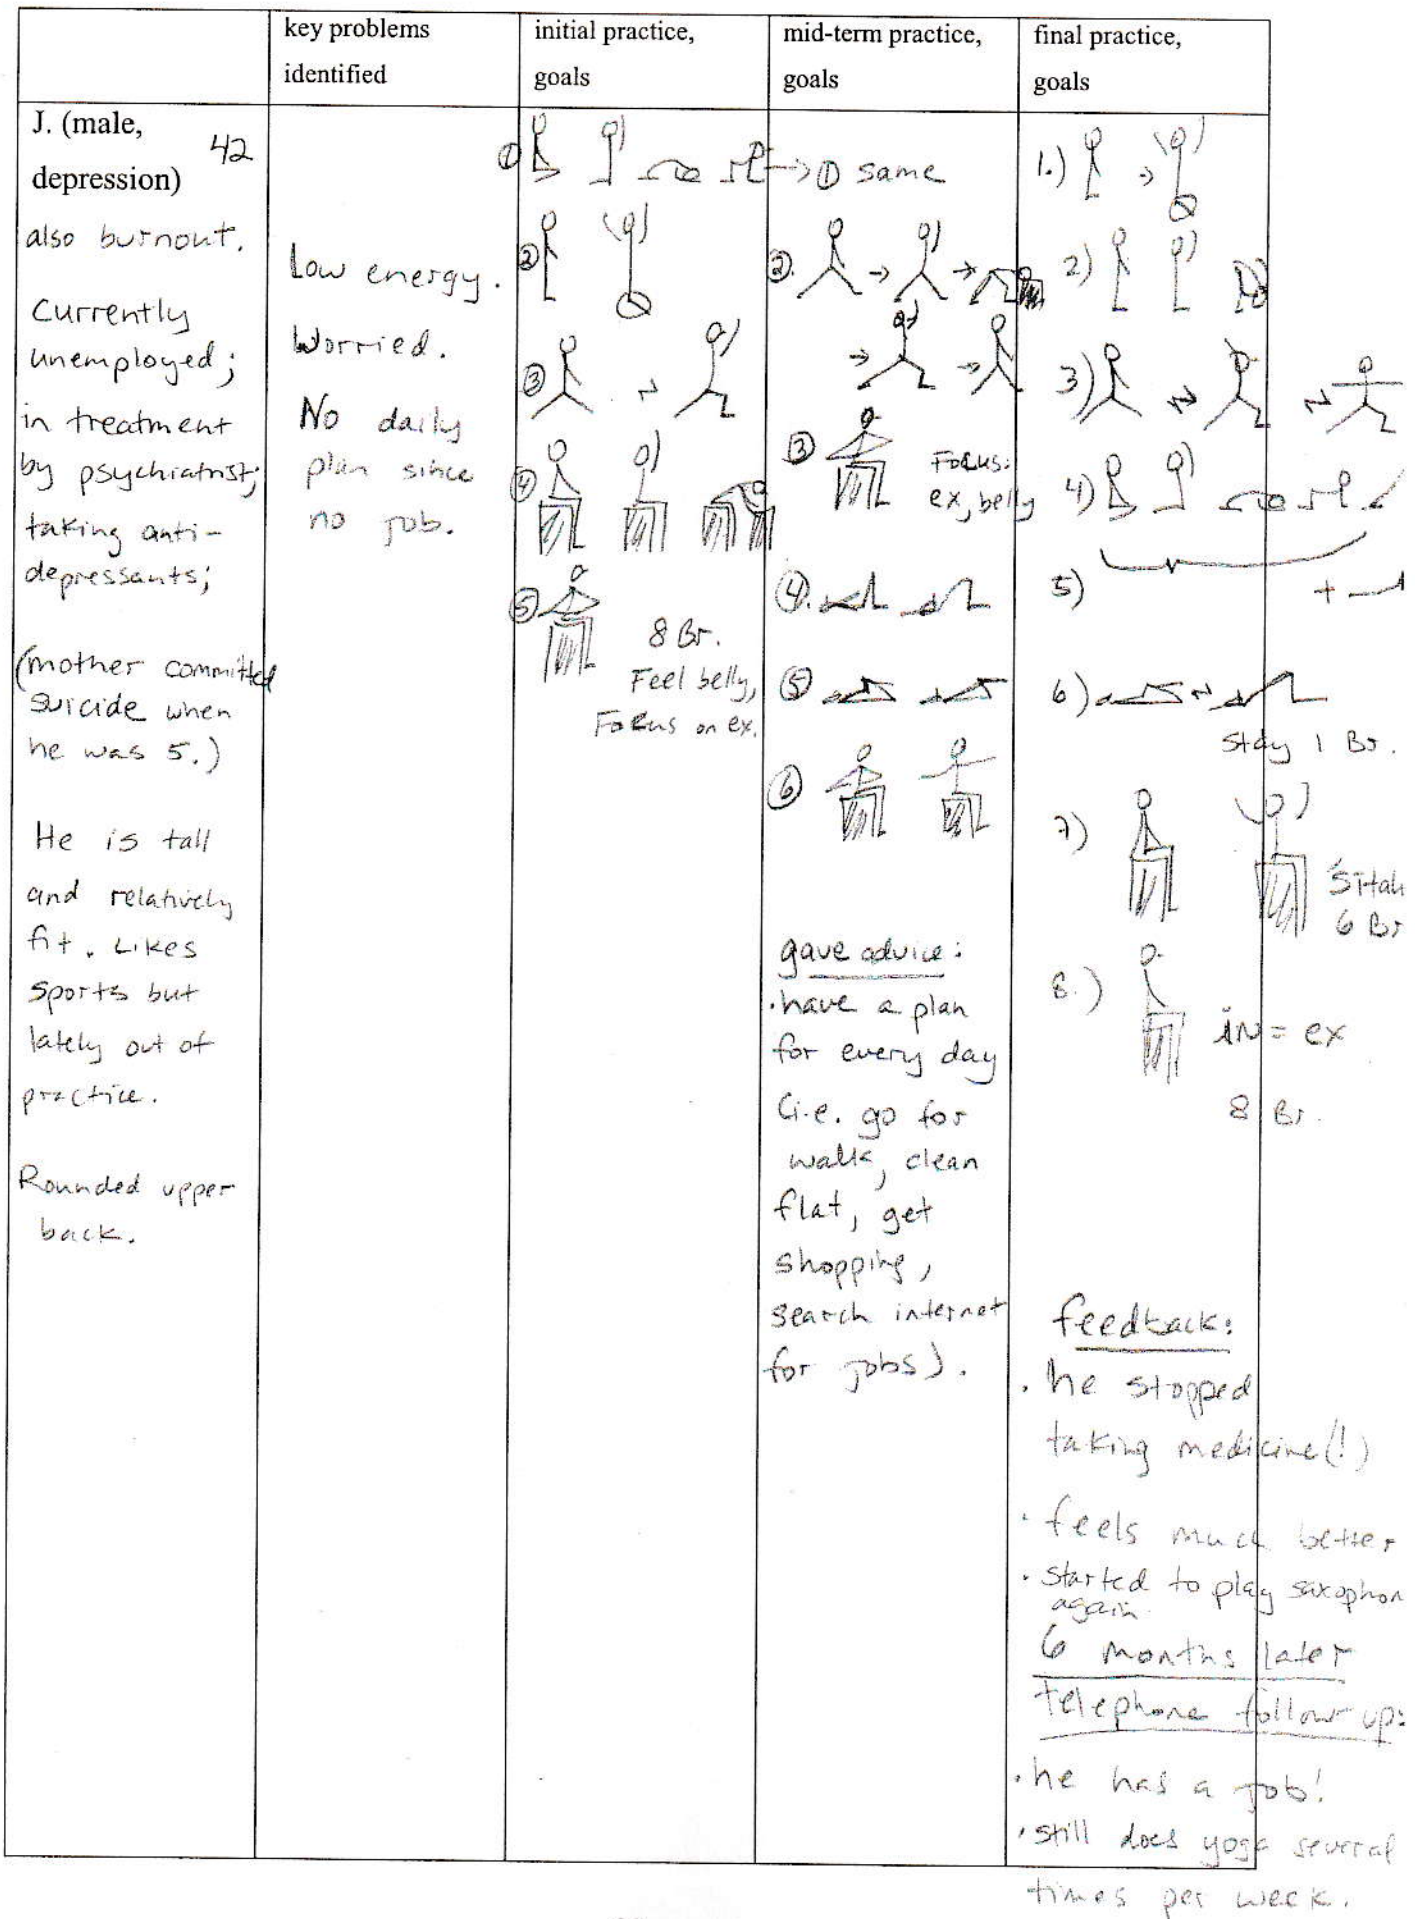 key problems
identified
initial practice,
goals
mid-term practice,
goals
final practice,
goals
J. (male,
42
depression)
also burnout.
Currently
unemployed;
in treatment
by psychiatrist;
taking anti-
depressants;
(mother committed
suicide when
he was 5.)
He is tall
and relatively
fit. Likes
sports but
lately out of
practice.
Rounded upper
back.
Low energy.
Worried.
No daily
plan since
no job.
①
②
③
④
⑤
8 Br.
Feel belly,
Focus on ex.
→ ① same
②.
③
Focus:
ex, belly
④.
⑤
⑥
gave advice:
·have a plan
for every day
(i.e. go for
walk, clean
flat, get
shopping,
search internet
for jobs).
1.)
2)
3)
4)
5)
+
6)
Stay 1 Br.
7)
Sitali
6 Br
8.)
iN = ex
8 Br.
feedback:
· he stopped
taking medicine(!)
· feels much better
· started to play saxophon
again.
6 months later
telephone follow up:
· he has a job!
· still does yoga several
times per week.